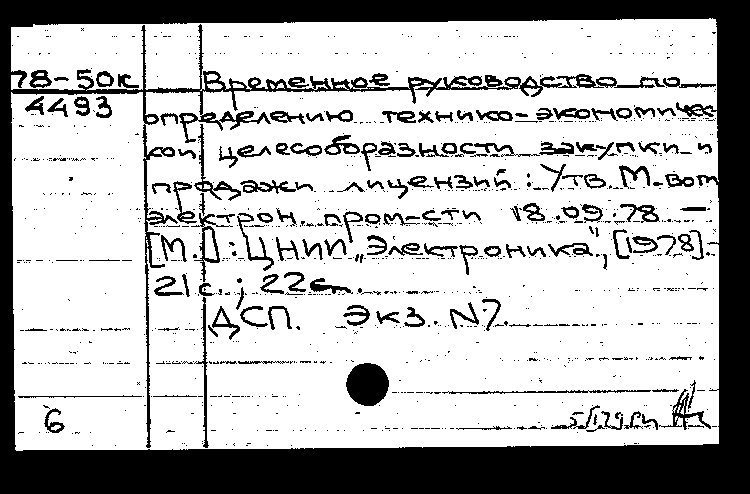 78-50к Временное руководство по
4493 определению технико-экономичес-
кой целесообразности закупки и
продажи лицензий : Утв. М-вом
электрон. пром-сти 18.09.78 –
[М.] : ЦНИИ „Электроника“, [1978].-
21 с. ; 22 см.
ДСП. Экз. N7.
6